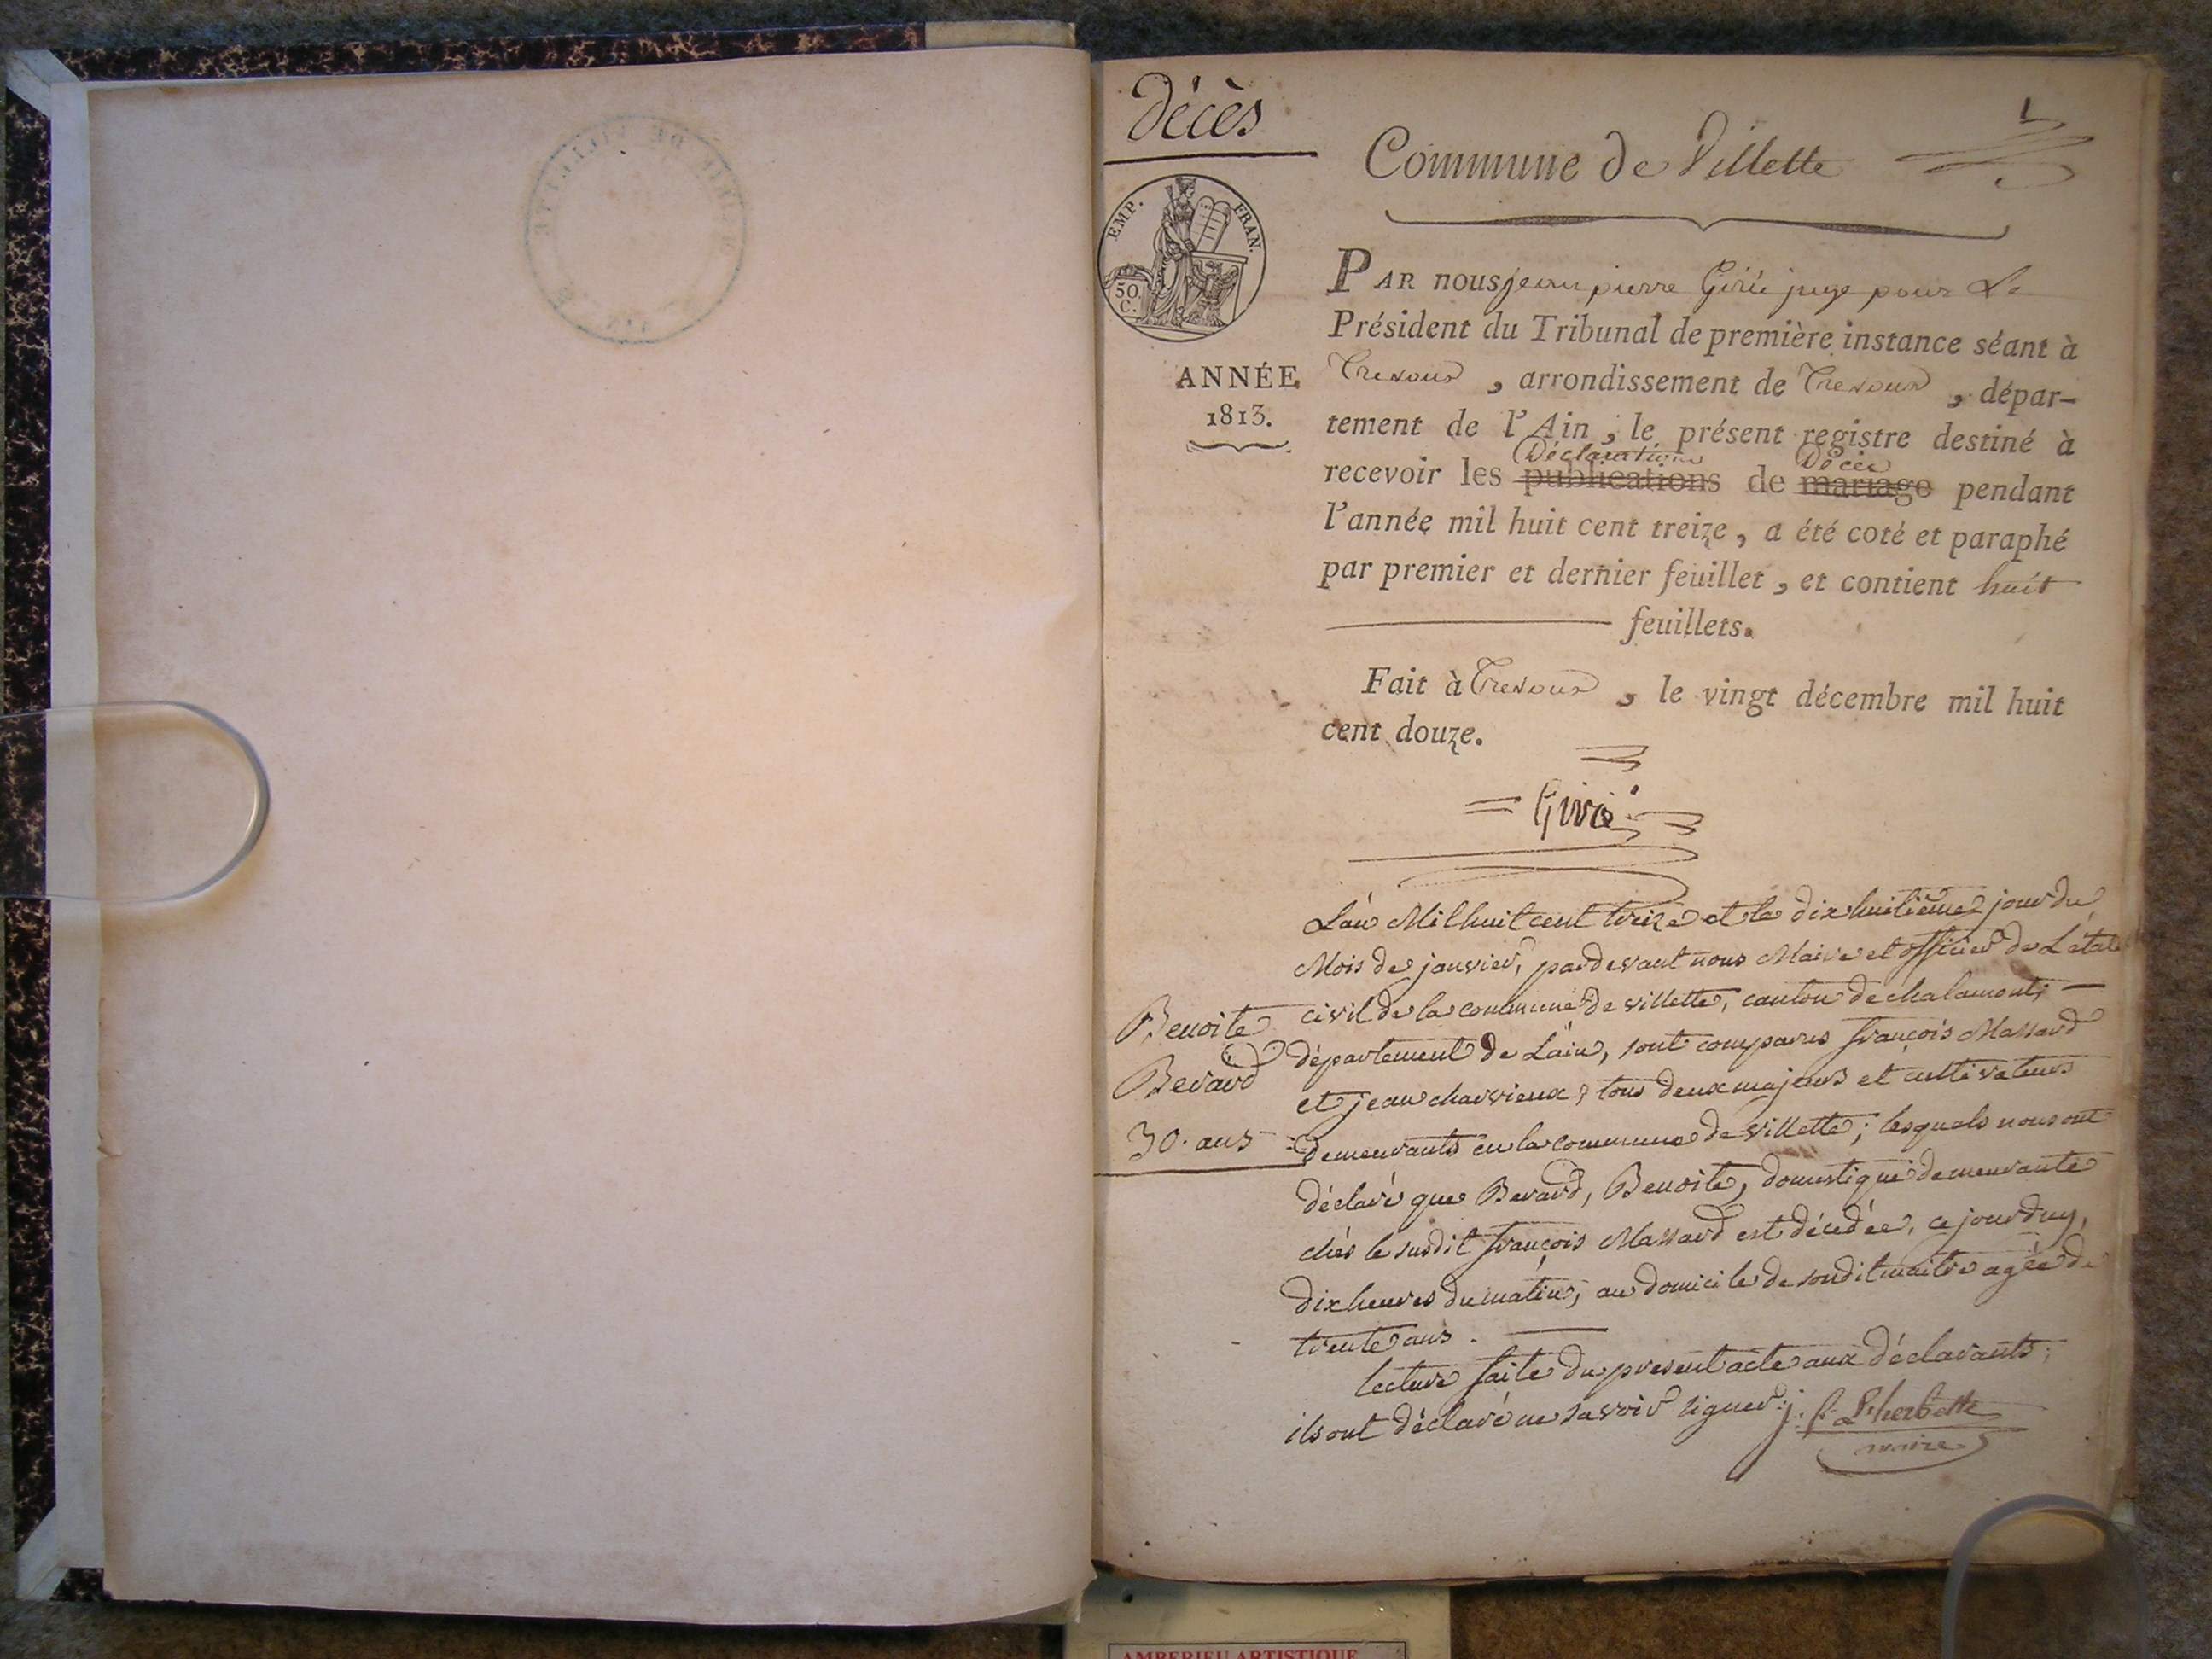 décès
1
Commune de Villette
EMP. FRAN.
50.
C.
ANNÉE
1813.
PAR nous jean pierre Girié juge pour Le
Président du Tribunal de première instance séant à
Trevoux, arrondissement de Trevoux, dépar-
tement de l'Ain, le présent registre destiné à
Déclarations Décès
recevoir les publications de mariage pendant
l'année mil huit cent treize, a été coté et paraphé
par premier et dernier feuillet, et contient huit
feuillets.
Fait à Trevoux, le vingt décembre mil huit
cent douze.
Benoite
Berard
30. ans
L'an Mil huit cent treize et le dix huitième jour du
Mois de janvier, pardevant nous Maire et officier de L'état
civil de la commune de villette, canton de chalamont,
département de L'ain, sont comparus françois Massard
et jean charvieux, tous deux majeurs et cultivateurs
demeurants en la commune de villette; lesquels nous ont
déclaré que Berard, Benoite, domestique demeurante
chès le susdit françois Massard est décédée, ce jourduy,
dix heures du matin, au domicile de sondit maitre agée de
trente ans.
lecture faite du present acte aux déclarants;
ils ont déclaré ne savoir signer. j. f. Lherbette
maire
AMBERIEU ARTISTIQUE